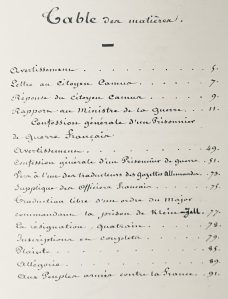 Table des matières.
Avertissement 5.
Lettre au Citoyen Camus 7.
Réponse du Citoyen Camus 9.
Rapport au Ministre de la Guerre 11.
Confession générale d'un Prisonnier
de Guerre Français
Avertissement 49.
Confession générale d'un Prisonnier de guerre 51.
des traducteurs des Gazettes Allemandes 73.
Supplique des Officiers français 75.
Traduction libre d'un ordre du Major
commandant la prison de Klein-Zell 77.
La résignation, quatrain 78.
Inscriptions en couplets 79.
Plainte 85.
Allégorie 89.
Aux Peuples armés contre la France 91.